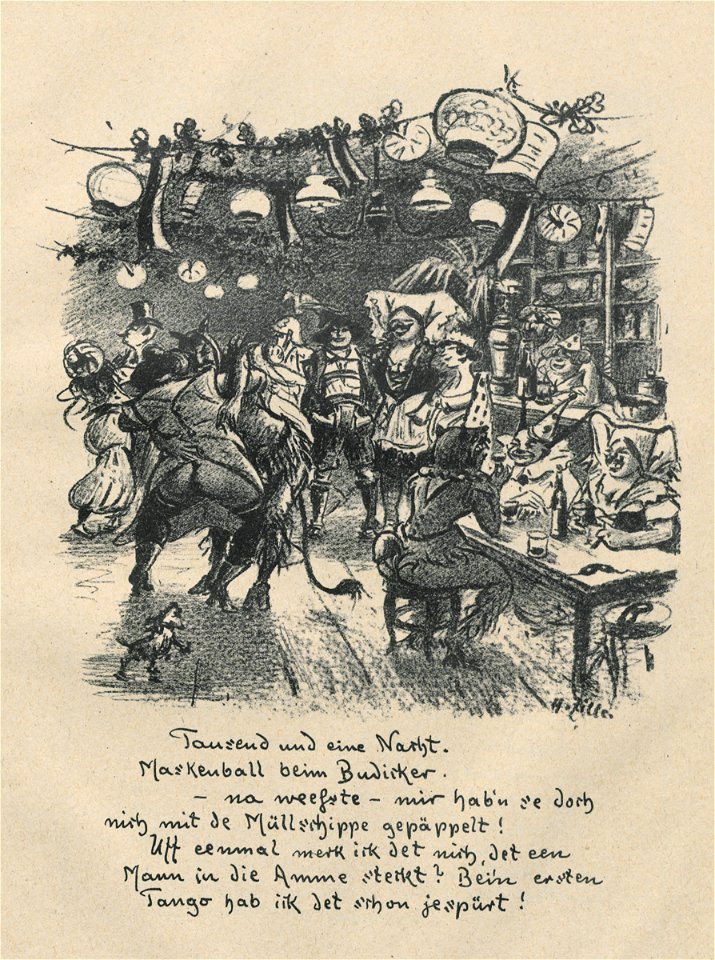 H. Zille.
Tausend und eine Nacht.
Maskenball beim Budicker.
– na weeßste – mir hab'n se doch
nich mit de Müllschippe gepäppelt!
Uff eenmal merk ick det nich, det een
Mann in die Amme steckt? Bei'n ersten
Tango hab ick det schon jespürt!